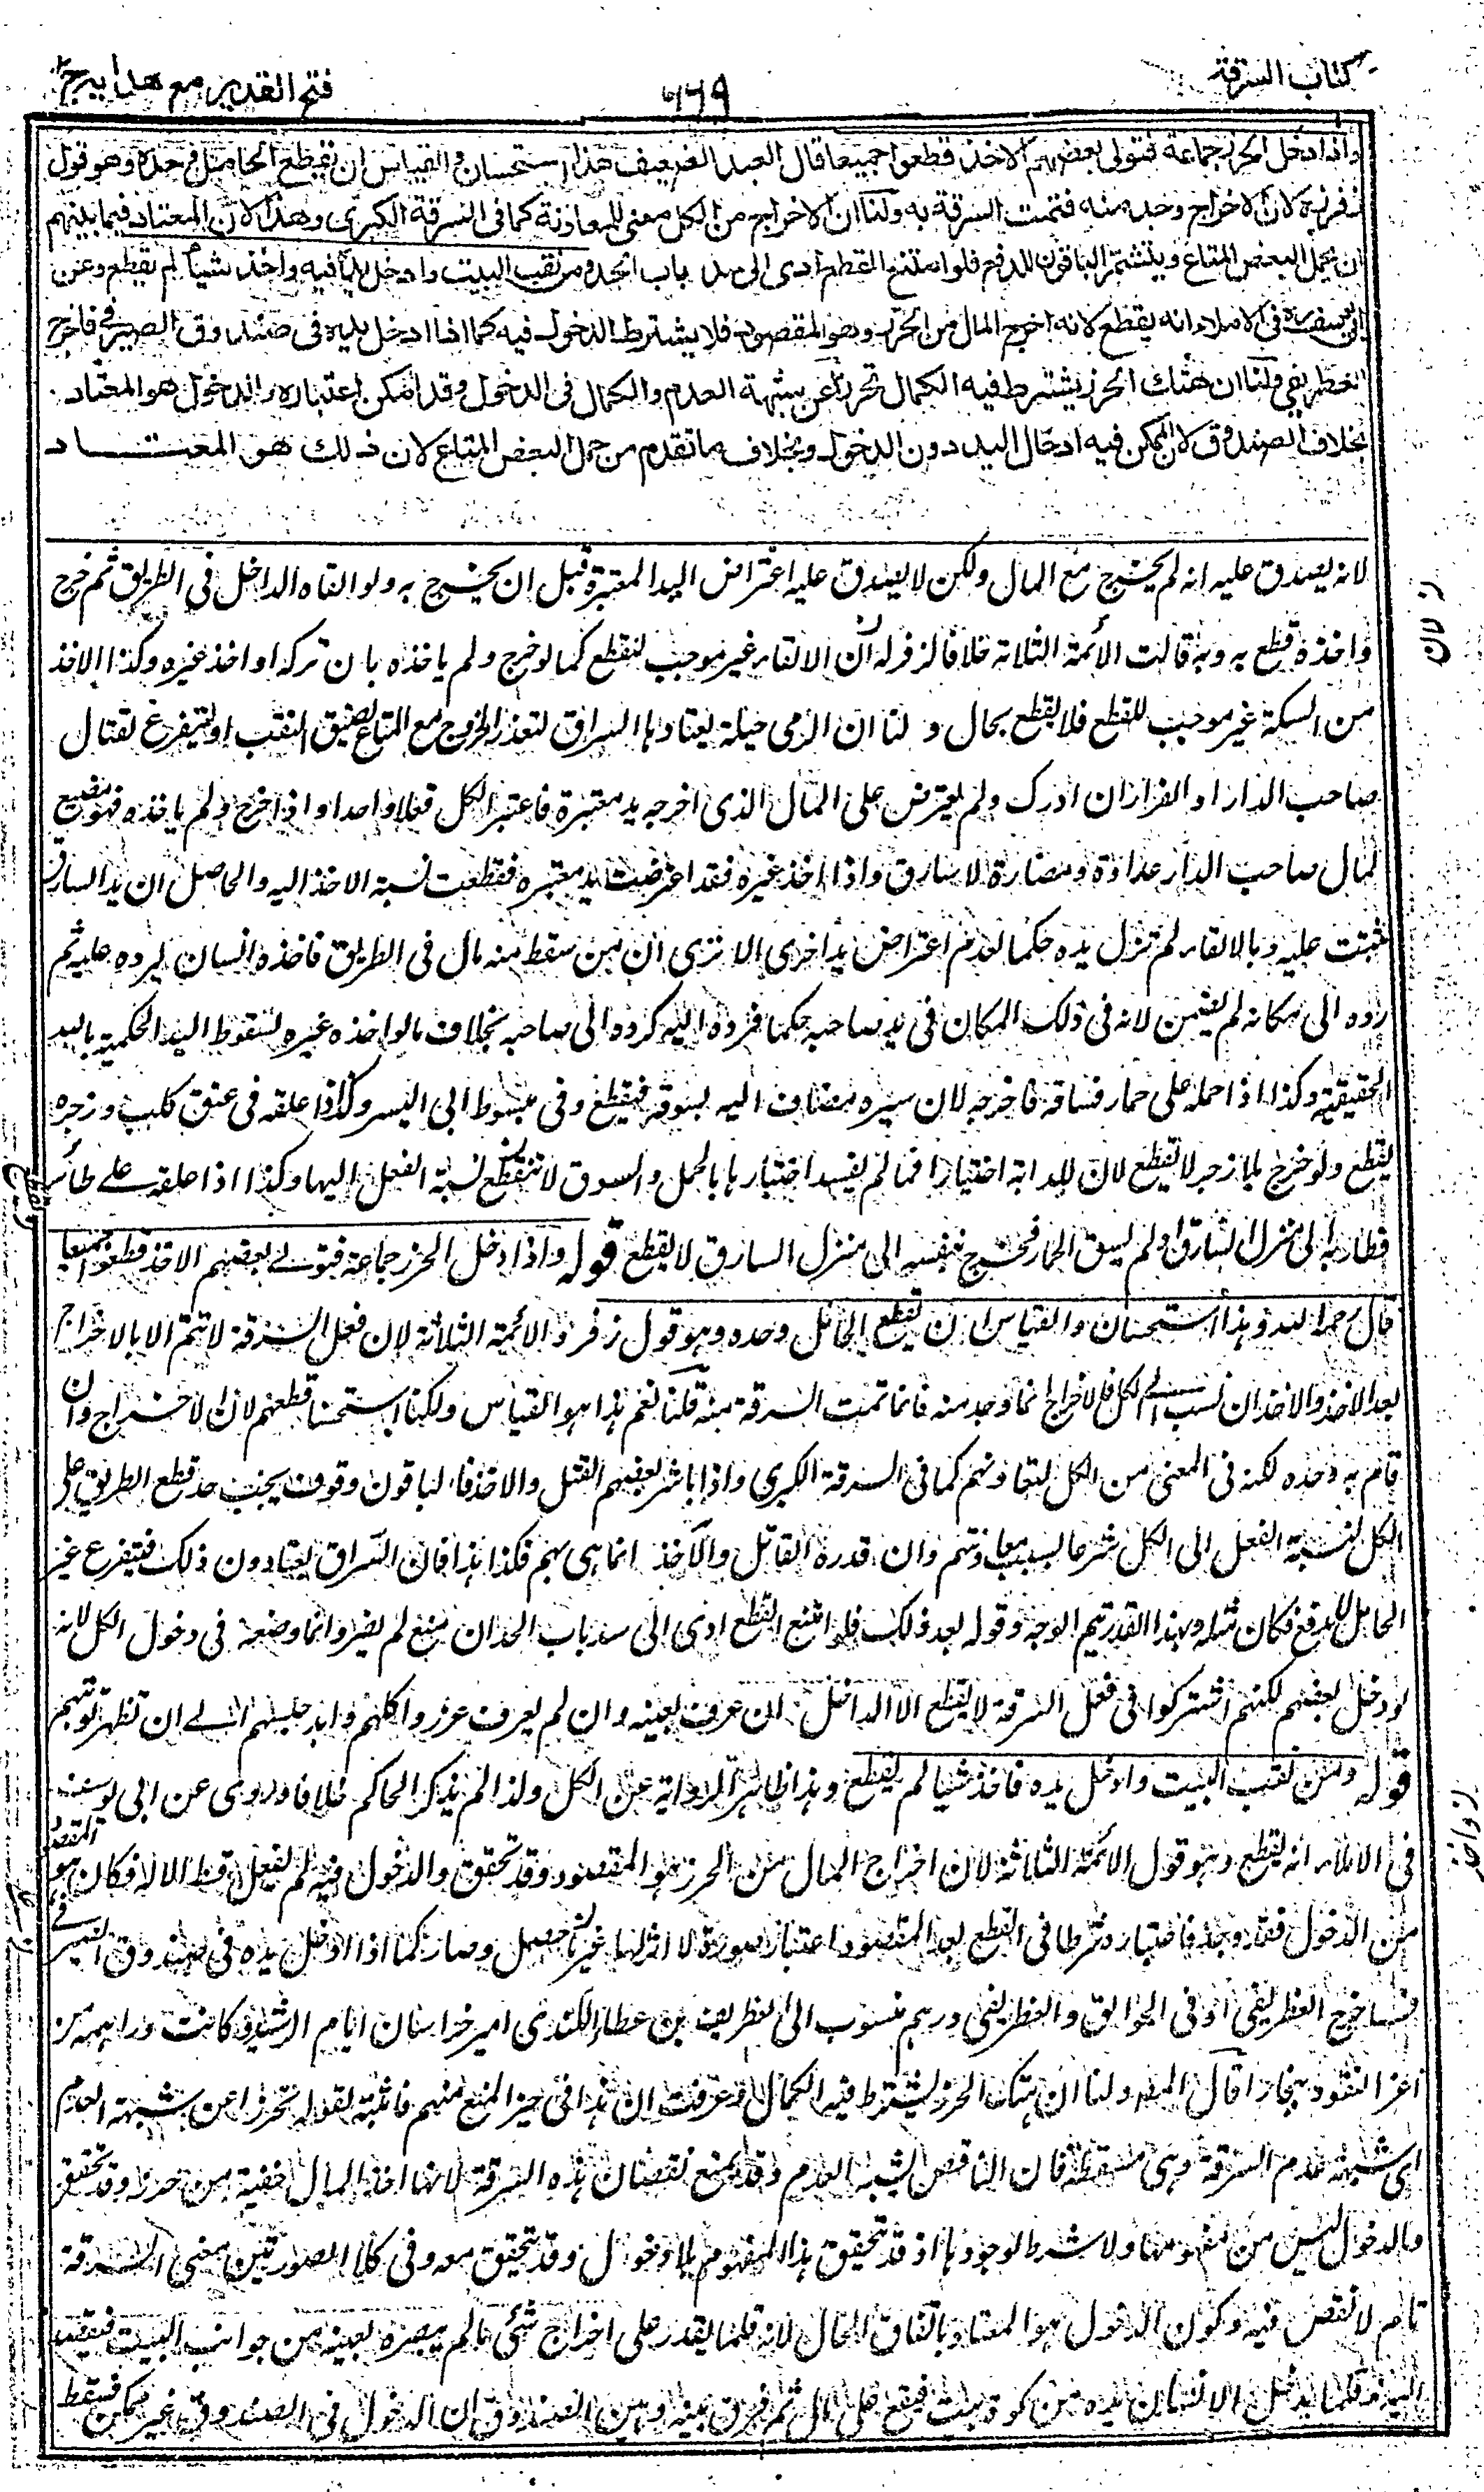 كتاب السرقة
٦٦٩
فتح القدير مع هدايه ج ٢
واذا دخل الحرز جماعة فتولى بعضهم الاخذ قطعوا جميعا قال العبد الضعيف هذا استحسان والقياس ان يقطع الحامل وحده وهو قول
زفر لان الاخراج وجد منه فتمت السرقة به ولنا ان الاخراج من الكل معنى للمعاونة كما فى السرقة الكبرى وهذا لان المعتاد فيما بينهم
ان يحمل البعض المتاع ويتشمر الباقون للدفع فلو امتنع القطع ادى الى سد باب الحد ومن نقب البيت وادخل يده فيه واخذ شيئا لم يقطع وعن
ابى يوسف فى الاملاء انه يقطع لانه اخرج المال من الحرز وهو المقصود فلا يشترط الدخول فيه كما اذا ادخل يده فى صندوق الصيرفى فاخرج
الغطريفى ولنا ان هتك الحرز يشترط فيه الكمال تحرزا عن شبهة العدم والكمال فى الدخول وقد امكن اعتباره والدخول هو المعتاد
بخلاف الصندوق لان الممكن فيه ادخال اليد دون الدخول وبخلاف ما تقدم من حمل البعض المتاع لان ذلك هو المعتاد
لانه يصدق عليه انه لم يخرج مع المال ولكن لا يصدق عليه اعتراض اليد المعتبرة قبل ان يخرج به ولو القاه الداخل فى الطريق ثم خرج
واخذه قطع به وبه قالت الأئمة الثلاثة خلافا لزفر له ان الالقاء غير موجب للقطع كما لو خرج ولم ياخذه بان تركه او اخذ غيره وكذا الاخذ
من السكة غير موجب للقطع فلا يقطع بحال ولنا ان الرمى حيلة يعتادها السراق لتعذر الخروج مع المتاع لضيق النقب او ليتفرغ لقتال
صاحب الدار او الفرار ان ادرك ولم يعترض على المال الذى اخرجه يد معتبرة فاعتبر الكل فعلا واحدا واذا خرج ولم ياخذه فهو مضيع
لمال صاحب الدار عداوة ومضارة لا سارق واذا اخذ غيره فقد اعترضت يد معتبرة فقطعت نسبة الاخذ اليه والحاصل ان يد السارق
ثبتت عليه وبالالقاء لم تزل يده حكما لعدم اعتراض يد اخرى الا ترى ان من سقط منه مال فى الطريق فاخذه انسان ليرده عليه ثم
رده الى مكانه لم يضمن لانه فى ذلك المكان فى يد صاحبه حكما فرده اليه كرده الى صاحبه بخلاف ما لو اخذه غيره لسقوط اليد الحكمية باليد
الحقيقية وكذا اذا حمله على حمار فساقه فاخرجه لان سيره مضاف اليه بسوقه فيقطع وفى مبسوط ابى اليسر وكذا اذا علقه فى عنق كلب وزجره
يقطع ولو خرج بلا زجر لا يقطع لان للدابة اختيارا فما لم يفسد اختيارها بالحمل والسوق لا تنقطع نسبة الفعل اليها وكذا اذا علقه على طائر
فطار به الى منزل السارق او لم يسق الحمار فخرج بنفسه الى منزل السارق لا يقطع قوله واذا دخل الحرز جماعة فتولى بعضهم الاخذ قطعوا جميعا
قال رحمه الله وهذا استحسان والقياس ان يقطع الحامل وحده وهو قول زفر والائمة الثلاثة لان فعل السرقة لا تتم الا بالاخراج
بعد الاخذ والاخذ ان نسب الى الكل فالاخراج انما وجد منه فانما تمت السرقة منه قلنا نعم هذا هو القياس ولكنا استحسنا قطعهم لان الاخراج وان
قام به وحده لكنه فى المعنى من الكل لتعاونهم كما فى السرقة الكبرى واذا باشر بعضهم القتل والاخذ والباقون وقوف يجب حد قطع الطريق على
الكل لنسبة الفعل الى الكل شرعا بسبب معاونتهم وان قدرة القاتل والآخذ انما هى بهم فكذا هذا فان السراق يعتادون ذلك فيتفرع غير
الحامل للدفع فكان مثله وبهذا القدر يتم الوجه وقوله بعد ذلك فلو امتنع القطع ادى الى سد باب الحد ان منع لم يضر وانما وضعه فى دخول الكل لانه
لو دخل بعضهم لكنهم اشتركوا فى فعل السرقة لا يقطع الا الداخل ان عرف بعينه وان لم يعرف عزروا كلهم وابد حبسهم الى ان تظهر توبتهم
قوله ومن نقب البيت وادخل يده فاخذ شيئا لم يقطع وهذا ظاهر الرواية عن الكل ولذا لم يذكر الحاكم خلافا وروى عن ابى يوسف
فى الاملاء انه يقطع وهو قول الائمة الثلاثة لان اخراج المال من الحرز هو المقصود وقد تحقق والدخول فيه لم يفعل قط الا له فكان هو المقصود
من الدخول فقد وجد فاعتباره شرطا فى القطع بعد المقصود اعتبار صورة لا اثر لها غير ما حصل وصار كما اذا ادخل يده فى صندوق الصيرفى
فاخرج الغطريفى او فى الجوالق والغطريفى درهم منسوب الى غطريف بن عطاء الكندى امير خراسان ايام الرشيد وكانت دراهمه من
اعز النقود ببخارا قال المصـ ولنا ان هتك الحرز يشترط فيه الكمال وقد عرفت ان هذا فى حيز المنع منهم فاثبته بقوله تحرزا عن شبهة العدم
اى شبهة عدم السرقة وهى مسقطة فان الناقص يشبه العدم وقد يمنع نقصان هذه السرقة لانها اخذ المال خفية من حرزه وقد تحقق
والدخول ليس من مفهومها ولا شرط لوجودها اذ قد تحقق هذا المفهوم بلا دخول وقد تحقق معه وفى كلا الصورتين معنى السرقة
تام لا نقص فيه وكون الدخول هو المعتاد باتفاق الحال لانه قلما يقدر على اخراج شئ ما لم يبصره بعينه من جوانب البيت فيقصد
اليه فقلما يدخل الانسان يده من كوة بيت فيقع على مال ثم فرق بينه وبين الصندوق ان الدخول فى الصندوق غير ممكن فسقط